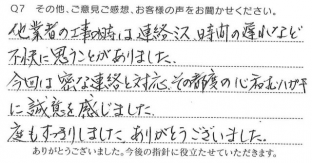 Q7 その他、ご意見ご感想、お客様の声をお聞かせください。
他業者の工事の時は連絡ミス、時間の遅れなど
不快に思うことがありました。
今回は密な連絡と対応、その都度の心有むハガキ
に誠意を感じました。
庭もすっきりしました、ありがとうございました。
ありがとうございました。今後の指針に役立たせていただきます。